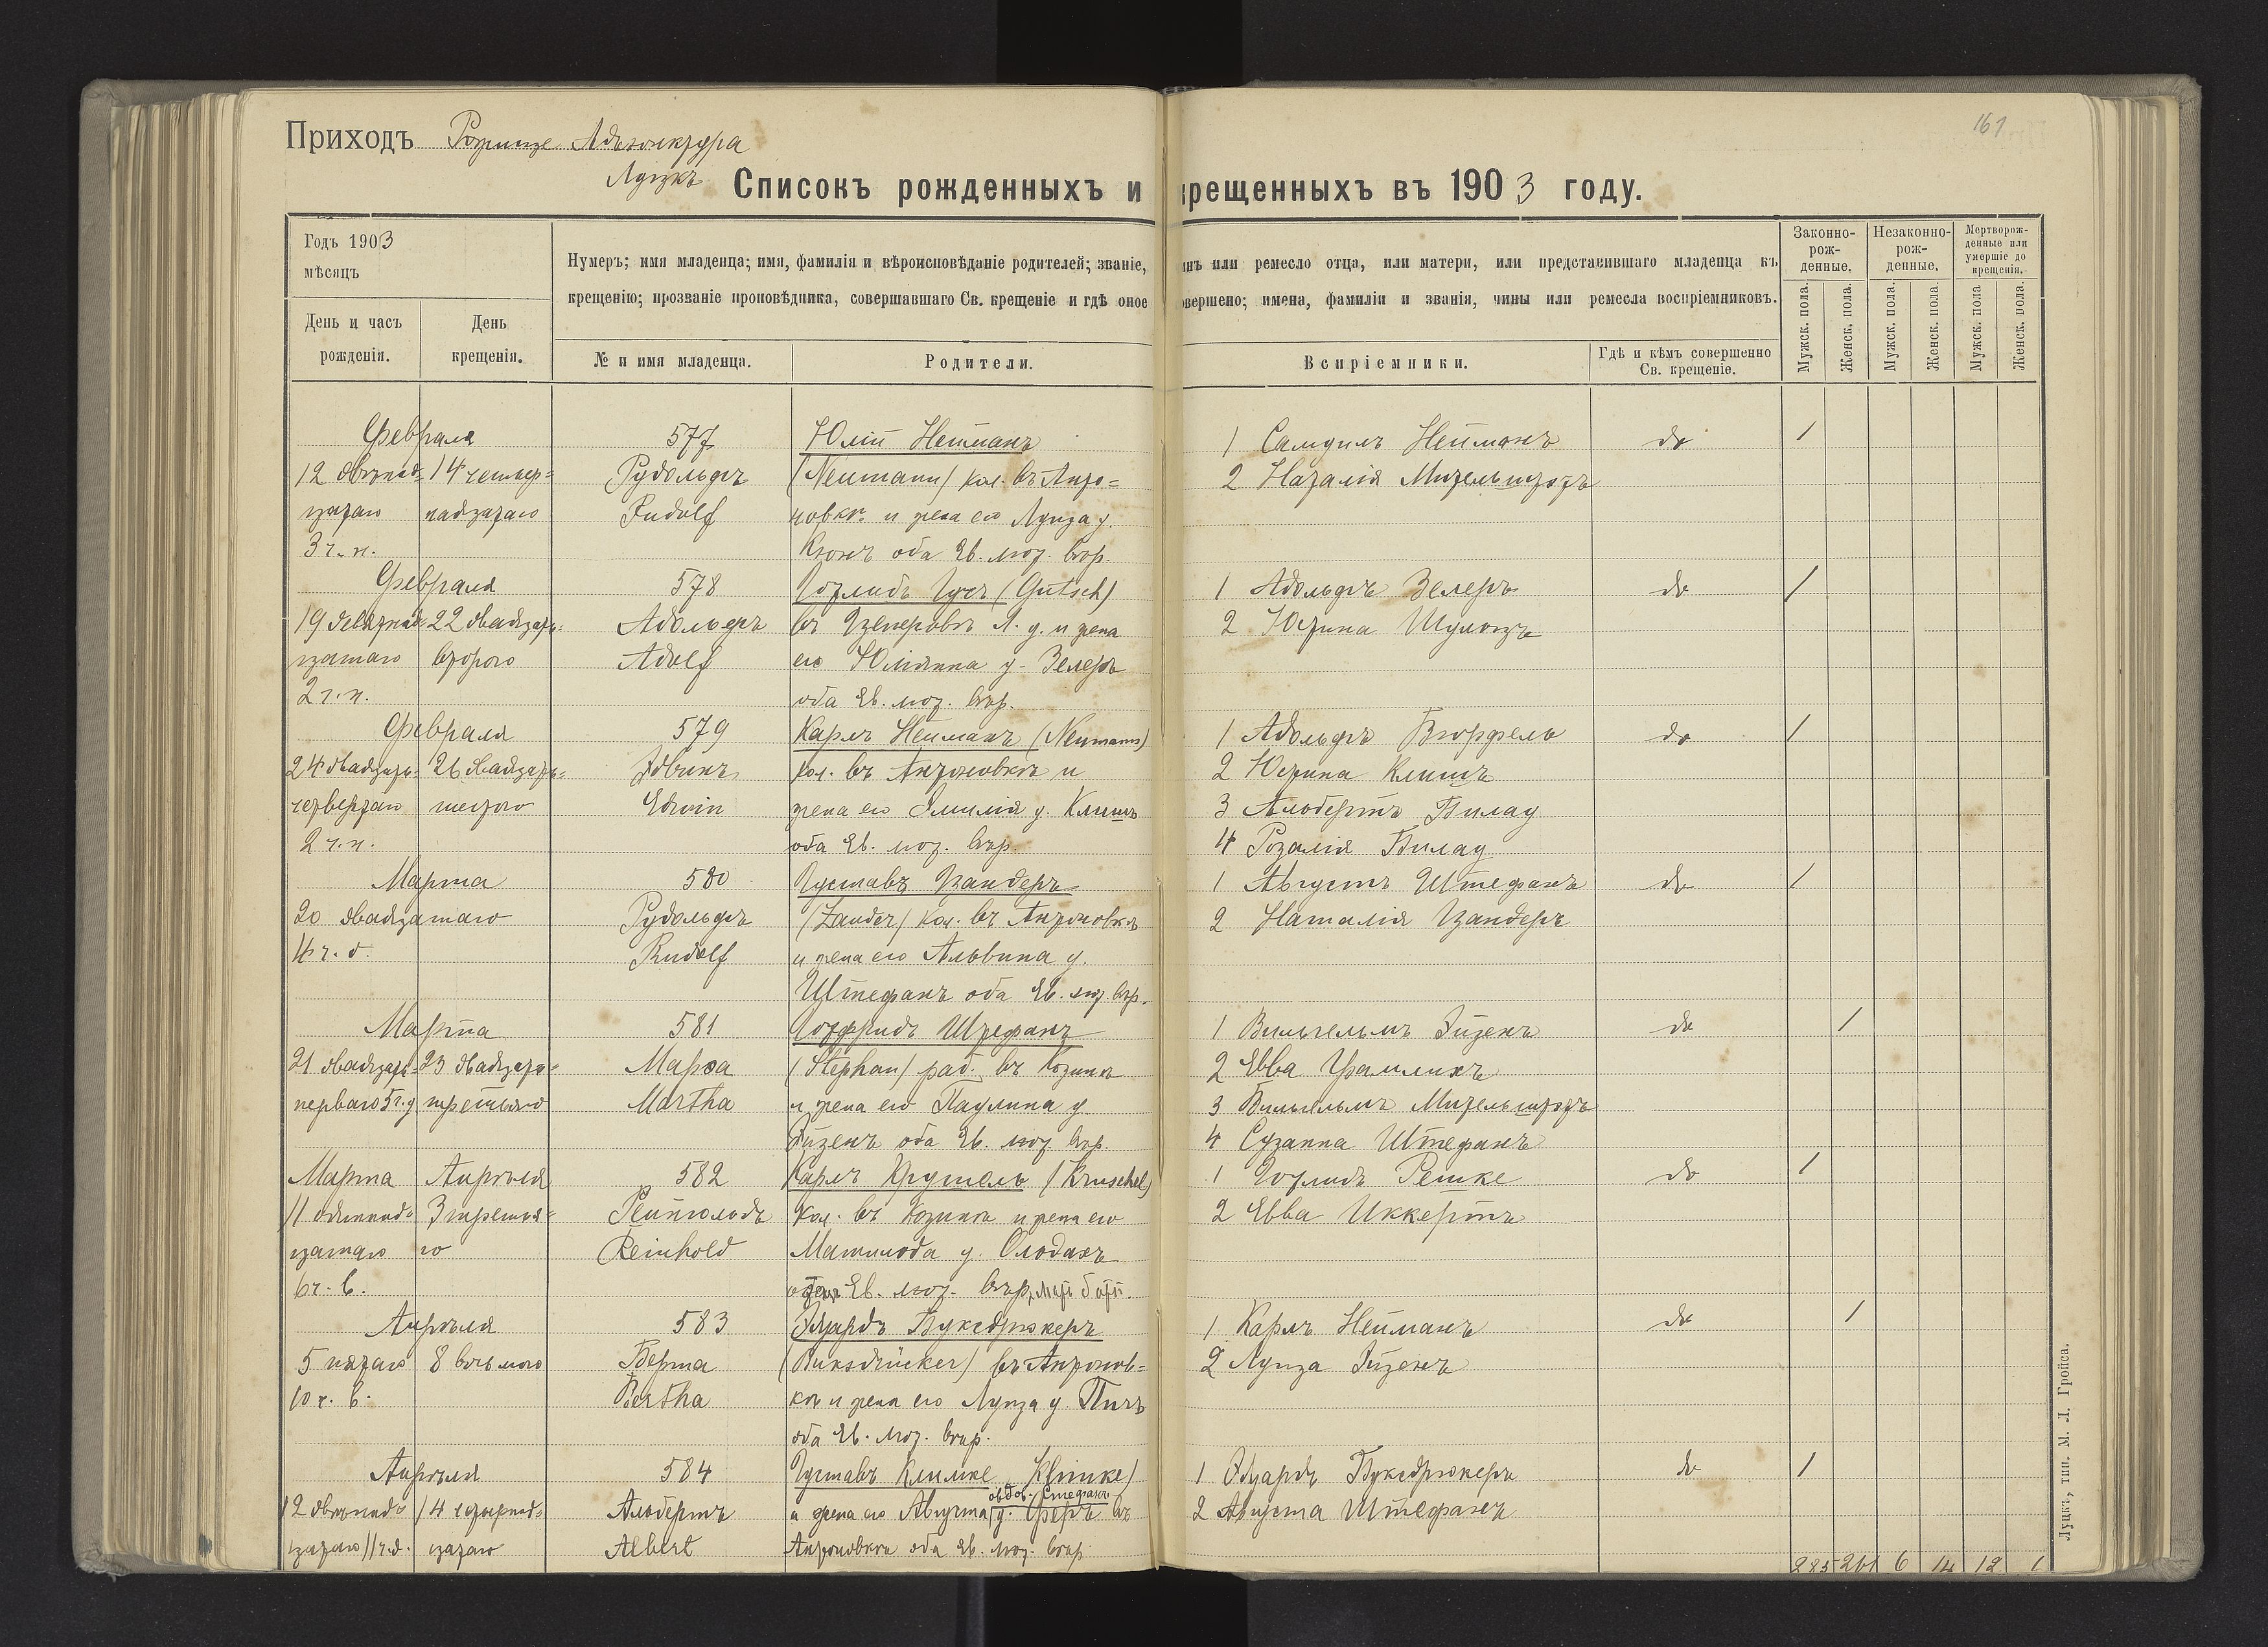 161
Приходъ Рожище Адъюнктура
Луцкъ
Списокъ рожденныхъ и крещенныхъ въ 1903 году.
Годъ 1903
мѣсяцъ
День и часъ рожденія.
День крещенія.
Нумеръ; имя младенца; имя, фамилія и вѣроисповѣданіе родителей; званіе, чинъ или ремесло отца, или матери, или представившаго младенца къ
крещенію; прозваніе проповѣдника, совершавшаго Св. крещеніе и гдѣ оное совершено; имена, фамиліи и званія, чины или ремесла воспріемниковъ.
№ и имя младенца.
Родители.
Вспріемники.
Гдѣ и кѣмъ совершенно Св. крещеніе.
Законно-рож-денные.
Незаконно-рож-денные.
Мертворож-денные или умершіе до крещенія.
Мужск. пола.
Женск. пола.
Мужск. пола.
Женск. пола.
Мужск. пола
Женск. пола.
Февраля 577 Юлій Нейманъ 1 Самуилъ Нейманъ do 1
12 двѣнад= 14 четыр= Рудольфъ (Neumann) кол. въ Антo= 2 Наталія Мительштетъ
цатаго надцатаго Rudolf новкѣ и жена его Луиза у.
3 ч. н. оба Ев. лют. вѣр.
Февраля 578 Готлибъ Гучъ (Gutsch) 1 Адольфъ Зелеръ do 1
19 девятнад= 22 двадцать= Адольфъ въ л. у. и жена 2 Юстина Шульцъ
цатаго второго Adolf его Юліянна у. Зелеръ
2 ч. н. оба Ев. лют. вѣр.
Февраля 579 Карлъ Нейманъ (Neumann) 1 Адольфъ do 1
24 двадцать= 26 двадцать= Эдвинъ кол. въ Антоновкѣ и 2 Юстина Климъ
четвертаго шестого Edwin жена его Эмилія у. Климъ 3 Альбертъ Билау
2 ч. н. оба Ев. лют. вѣр. 4 Розалія Билау
Марта 580 Густавъ Цандеръ 1 Августъ Штефанъ do 1
20 двадцатаго Рудольфъ (Zander) кол. въ Антоновкѣ 2 Наталія Цандеръ
4 ч. д. Rudolf и жена его Альвина у.
Штефанъ оба Ев. лют. вѣр.
Марта 581 Готфридъ Штефанъ 1 Вильгельмъ Эйзенъ do 1
21 двадцать= 23 двадцать= Марѳа (Stephan) раб. въ Козинѣ 2 Евва
перваго 5 ч. у третьяго Martha и жена его Паулина у. 3 Вильгельмъ Мительштетъ
Эйзенъ оба Ев. лют. вѣр. 4 Сузанна Штефанъ
Марта Апрѣля 582 Карлъ Крушель (Kruschel) 1 Готлибъ Решке do 1
11 одиннад= 3 третья= Рейнгольдъ кол. въ Козинѣ и жена его 2 Евва Иккертъ
цатаго го Reinhold Матильда у.
6 ч. в. Ев. лют. вѣр.
Апрѣля 583 Эдуардъ Буксдрюкеръ 1 Карлъ Нейманъ do 1
5 пятаго 8 восьмого Берта (Buksdrücker) въ Антонов= 2 Луиза Эйзенъ
10 ч. в. Bertha кѣ и жена его Луиза у.
оба Ев. лют. вѣр.
Апрѣля 584 Густавъ Климке (Klimke) 1 Эдуардъ Буксдрюкеръ do 1
овдов. Стефанъ
12 двѣнад= 14 четырнад= Альбертъ и жена его Августа у. въ 2 Августа Штефанъ
цатаго 11 ч. д. цатаго Albert Антоновкѣ оба Ев. лют. вѣр.
285 261 6 14 12 1
Луцкъ, тип. М. Л. Гройса.